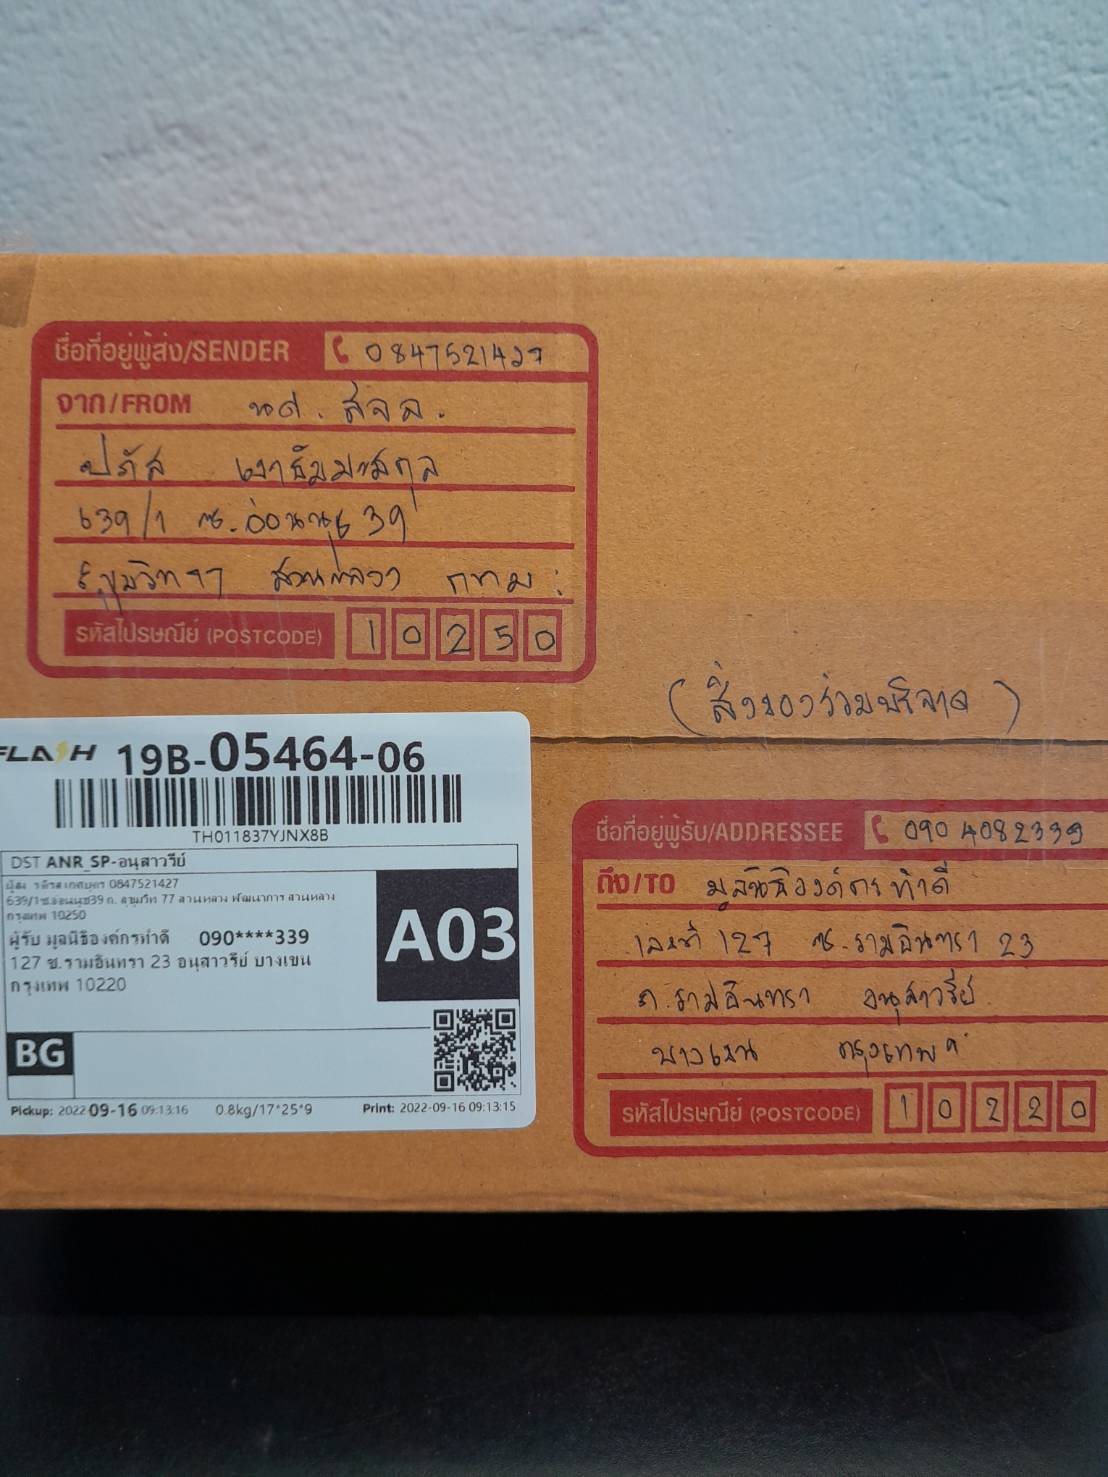 ชื่อที่อยู่ผู้ส่ง/SENDER 0847521427
จาก/FROM นศ. สจล.
639/1 ซ.อ่อนนุช 39
สุขุมวิท 77 สวนหลวง กทม.
รหัสไปรษณีย์ (POSTCODE) 10250
(สิ่งของร่วมบริจาค)
FLASH 19B-05464-06
TH011837YJNX8B
DST ANR_SP-อนุสาวรีย์
ผู้ส่ง 0847521427
639/1ซ.อ่อนนุช39 ถ. สุขุมวิท 77 สวนหลวง พัฒนาการ สวนหลวง
กรุงเทพ 10250
ผู้รับ มูลนิธิองค์กรทำดี 090****339
127 ซ.รามอินทรา 23 อนุสาวรีย์ บางเขน
กรุงเทพ 10220
A03
BG
Pickup: 2022-09-16 09:13:16 0.8kg/17*25*9 Print: 2022-09-16 09:13:15
ชื่อที่อยู่ผู้รับ/ADDRESSEE 090 4082339
ถึง/TO มูลนิธิองค์กรทำดี
เลขที่ 127 ซ.รามอินทรา 23
ถ.รามอินทรา อนุสาวรีย์
บางเขน กรุงเทพฯ
รหัสไปรษณีย์ (POSTCODE) 10220